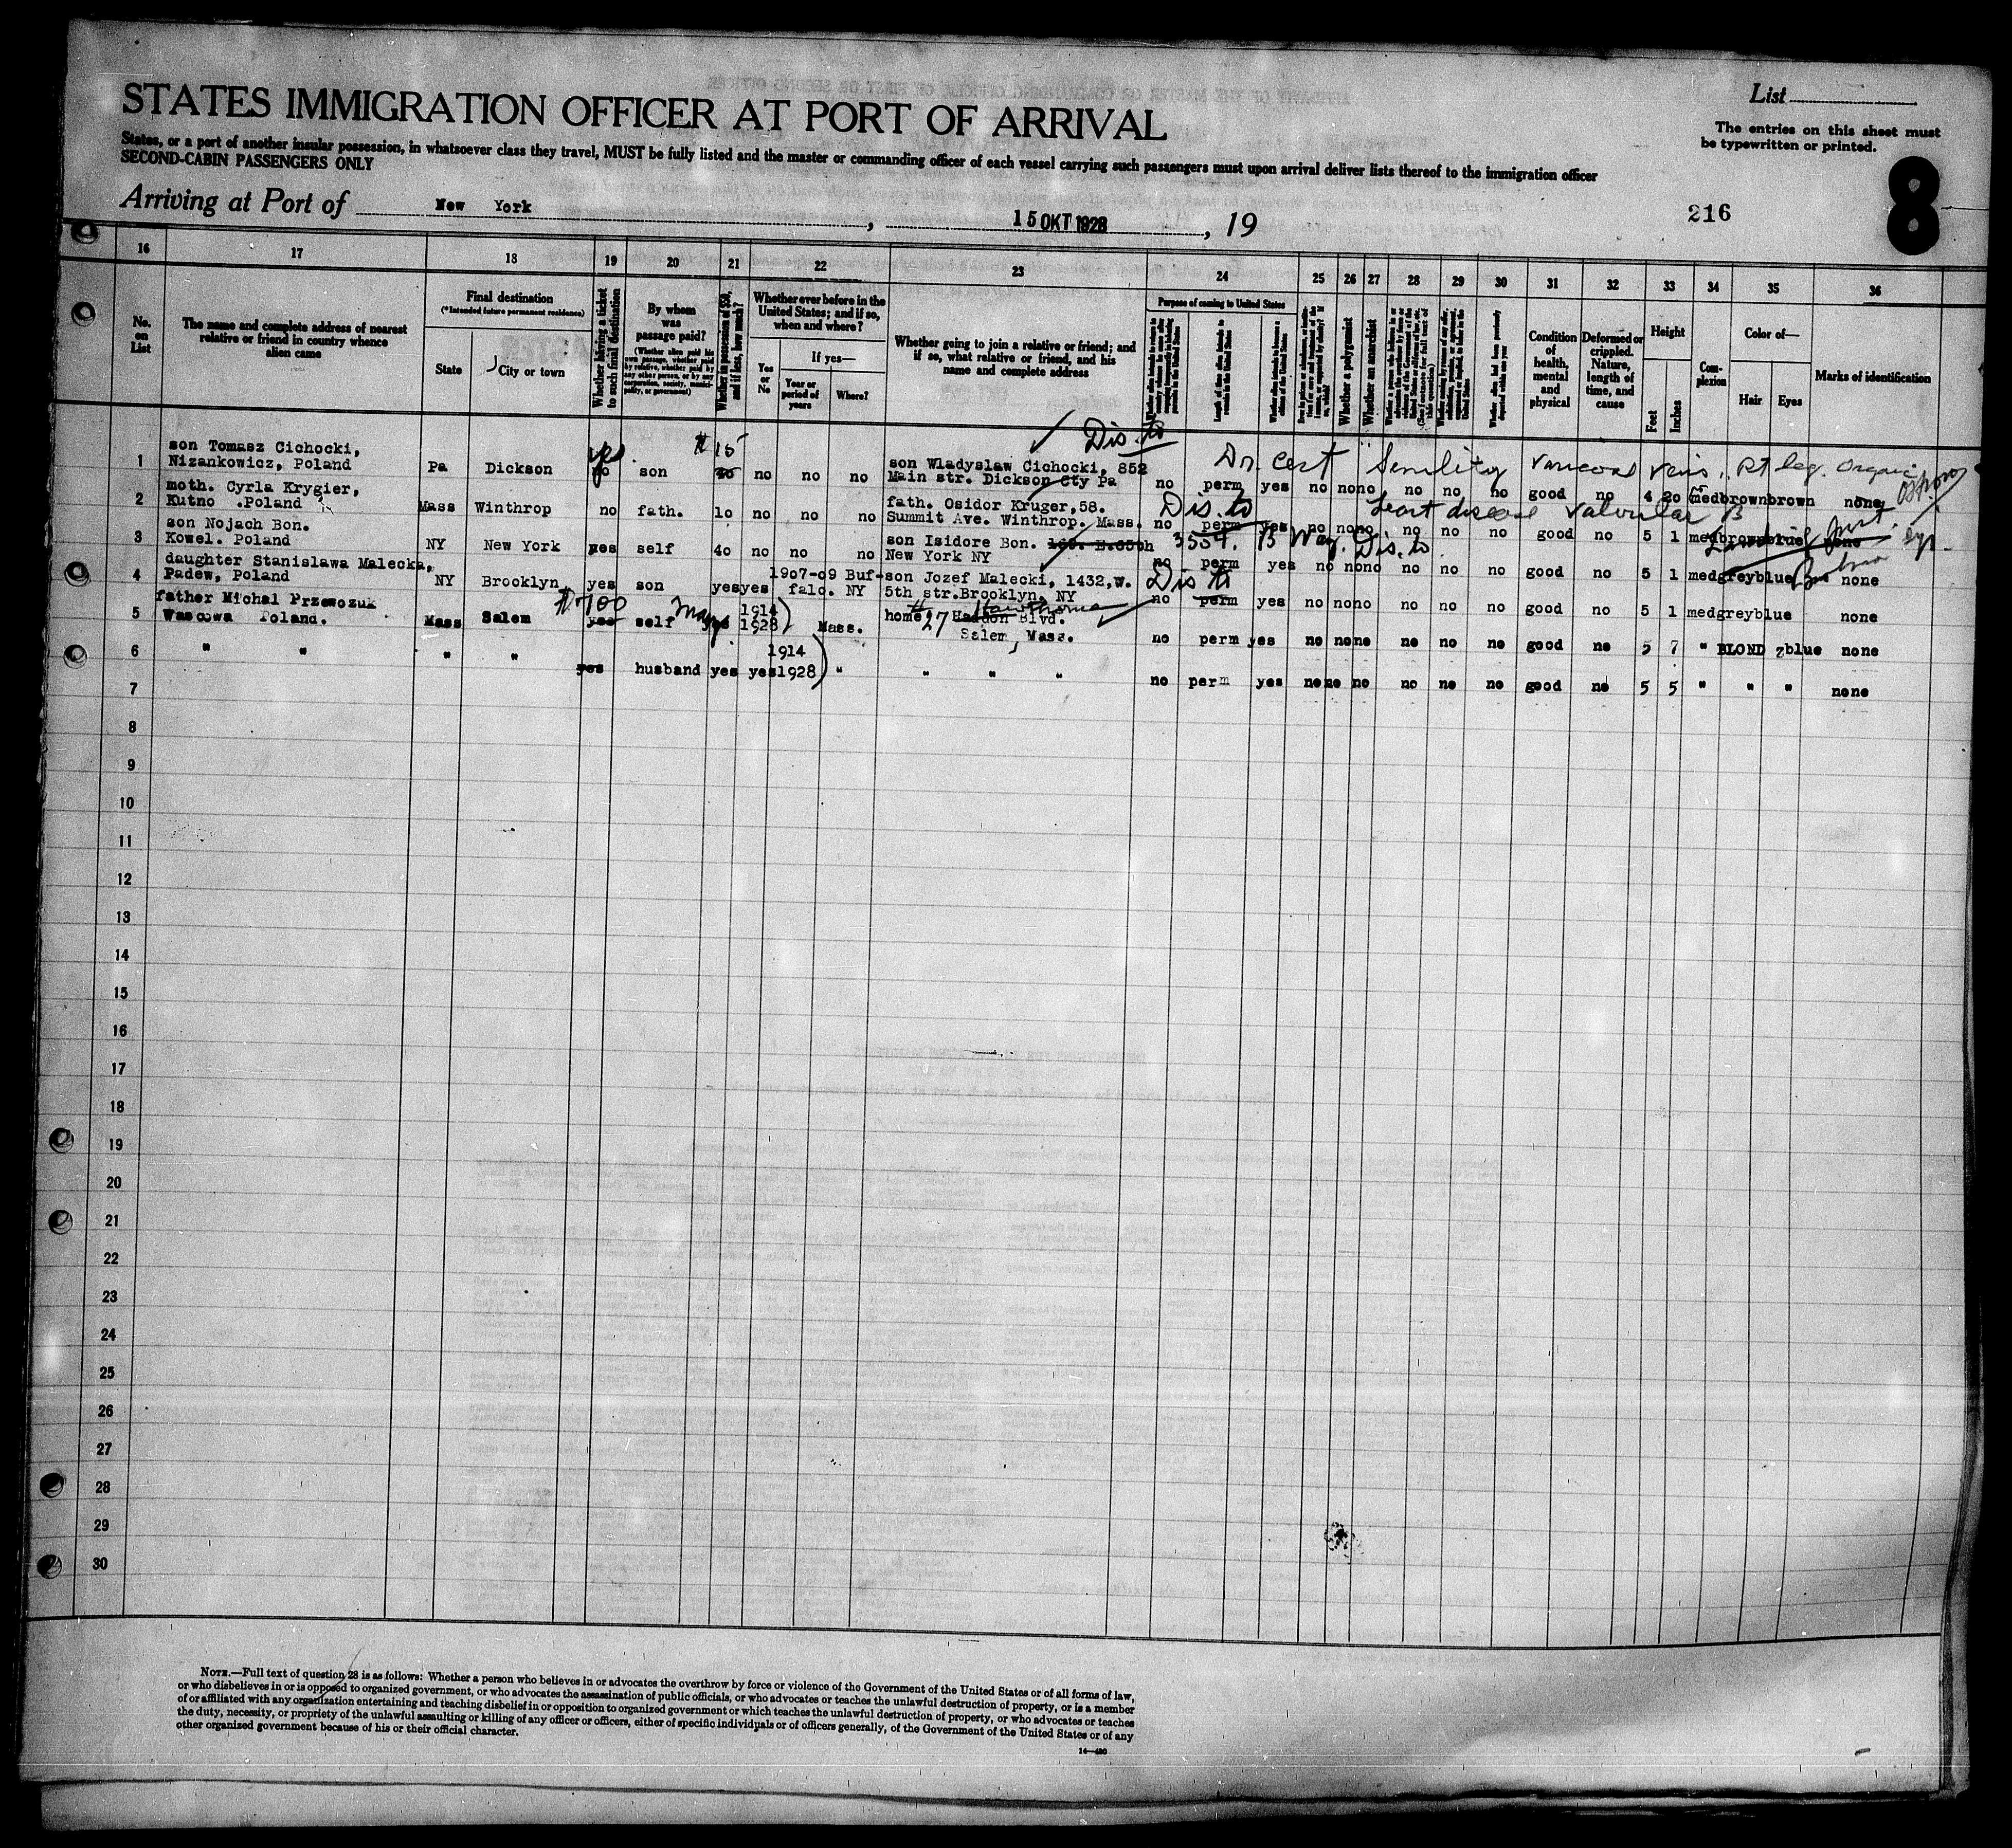 STATES IMMIGRATION OFFICER AT PORT OF ARRIVAL
List
The entries on this sheet must
be typewritten or printed.
States, or a port of another insular possession, in whatsoever class they travel, MUST be fully listed and the master or commanding officer of each vessel carrying such passengers must upon arrival deliver lists thereof to the immigration officer
SECOND-CABIN PASSENGERS ONLY
8
Arriving at Port of New York, 15 OKT 1928, 19
216
16 17 18 19 20 21 22 23 24 25 26 27 28 29 30 31 32 33 34 35 36
No. on List
The name and complete address of nearest relative or friend in country whence alien came
Final destination
(*Intended future permanent residence)
State
City or town
Whether having a ticket to such final destination
By whom was passage paid?
(Whether alien paid his own passage, whether paid by relative, whether paid by any other person, or by any corporation, society, municipality, or government)
Whether in possession of $50, and if less, how much?
Whether ever before in the United States; and if so, when and where?
Yes or No
If yes—
Year or period of years
Where?
Whether going to join a relative or friend; and if so, what relative or friend, and his name and complete address
Purpose of coming to United States
Length of time alien intends to remain in the United States
Whether alien intends to become a citizen of the United States
Whether a polygamist
Whether an anarchist
Condition of health, mental and physical
Deformed or crippled. Nature, length of time, and cause
Height
Feet
Inches
Complexion
Color of—
Hair
Eyes
Marks of identification
Dis. to
yes $ 15
Dr. Cert Senility varicose veins, Rt leg. organic
1 son Tomasz Cichocki,
Nizankowicz, Poland Pa Dickson son no no no son Wladyslaw Cichocki, 852
Main str. Dickson Cty Pa no perm yes no no no no no no good no 4 20 med brown brown none
heart disease valvular
Dis. to
2 moth. Cyrla Krygier,
Kutno .Poland Mass Winthrop no fath. 10 no no no fath. Osidor Kruger,58.
Summit Ave. Winthrop. Mass. no perm yes no no no no no no good no 5 1 med brown blue none
3554. B Way. Dis. to
3 son Nojach Bon.
Kowel. Poland NY New York yes self 40 no no no son Isidore Bon.
New York NY no perm yes no no no no no no good no 5 1 med grey blue none
Dis to
4 daughter Stanislawa Malecka,
Padew, Poland NY Brooklyn yes son yes yes 1907-09 Buffalo. NY son Jozef Malecki, 1432,w.
5th str.Brooklyn, NY no perm yes no no no no no no good no 5 1 med grey blue none
$700 Hawthorne
5 father Michal Przewozuk
Wascowa Poland. Mass Salem yes self yes 1914
1928) Mass. home 27 Haddon Blvd.
Salem, Mass. no perm yes no no no no no no good no 5 7 " BLOND blue none
6 " " " " yes husband yes yes 1914
1928) " " " " no perm yes no no no no no no good no 5 5 " " " none
7
8
9
10
11
12
13
14
15
16
17
18
19
20
21
22
23
24
25
26
27
28
29
30
NOTE.—Full text of question 28 is as follows: Whether a person who believes in or advocates the overthrow by force or violence of the Government of the United States or of all forms of law,
or who disbelieves in or is opposed to organized government, or who advocates the assassination of public officials, or who advocates or teaches the unlawful destruction of property, or is a member
of or affiliated with any organization entertaining and teaching disbelief in or opposition to organized government or which teaches the unlawful destruction of property, or who advocates or teaches
the duty, necessity, or propriety of the unlawful assaulting or killing of any officer or officers, either of specific individuals or of officers generally, of the Government of the United States or of any
other organized government because of his or their official character.
14—420